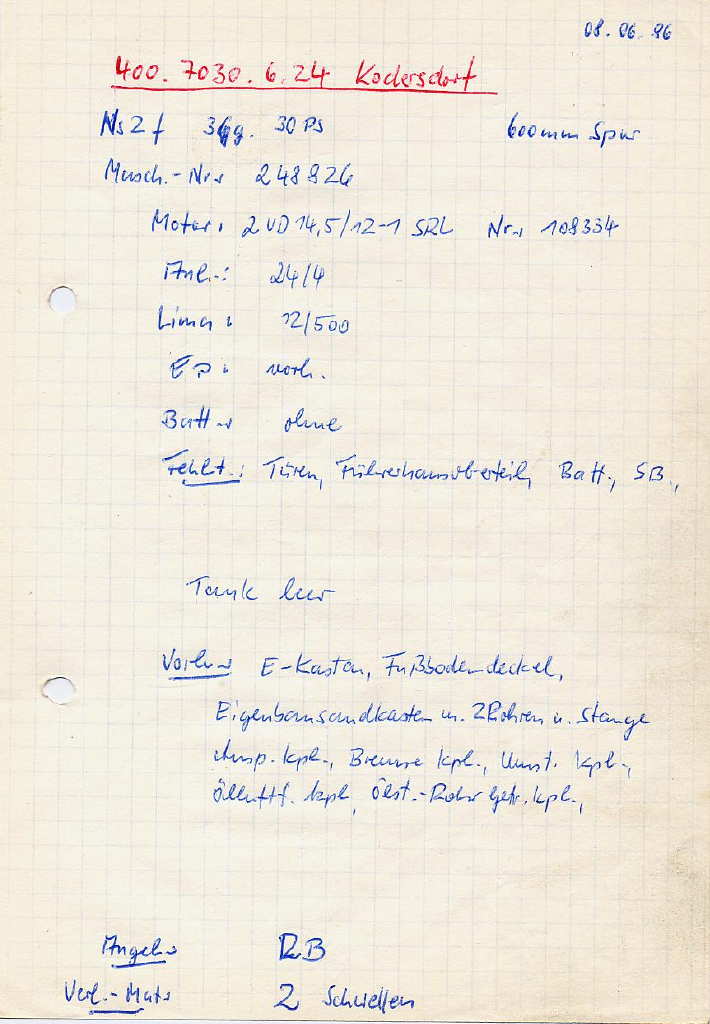 08.06.96
400.7030.6.24 Kodersdorf
Ns2f 3Gg. 30 PS 600mm Spur
Masch.-Nr.: 248826
Motor: 2 VD 14,5/12-1 SRL Nr.: 108334
Anl.: 24/4
Lima: 12/500
EP: vorh.
Batt.: ohne
Fehlt.: Türen, Führerhausoberteil, Batt., SB.,
Tank leer
Vorh.: E-Kasten, Fußbodendeckel,
Eigenbausandkasten m. 2 Rohren u. Stange
Ausp. kpl., Bremse kpl., Umst. kpl.,
Ölluftf. kpl, Ölst.-Rohr Getr. kpl.,
Angel.: RB
Verl.-Mat.: 2 Schwellen